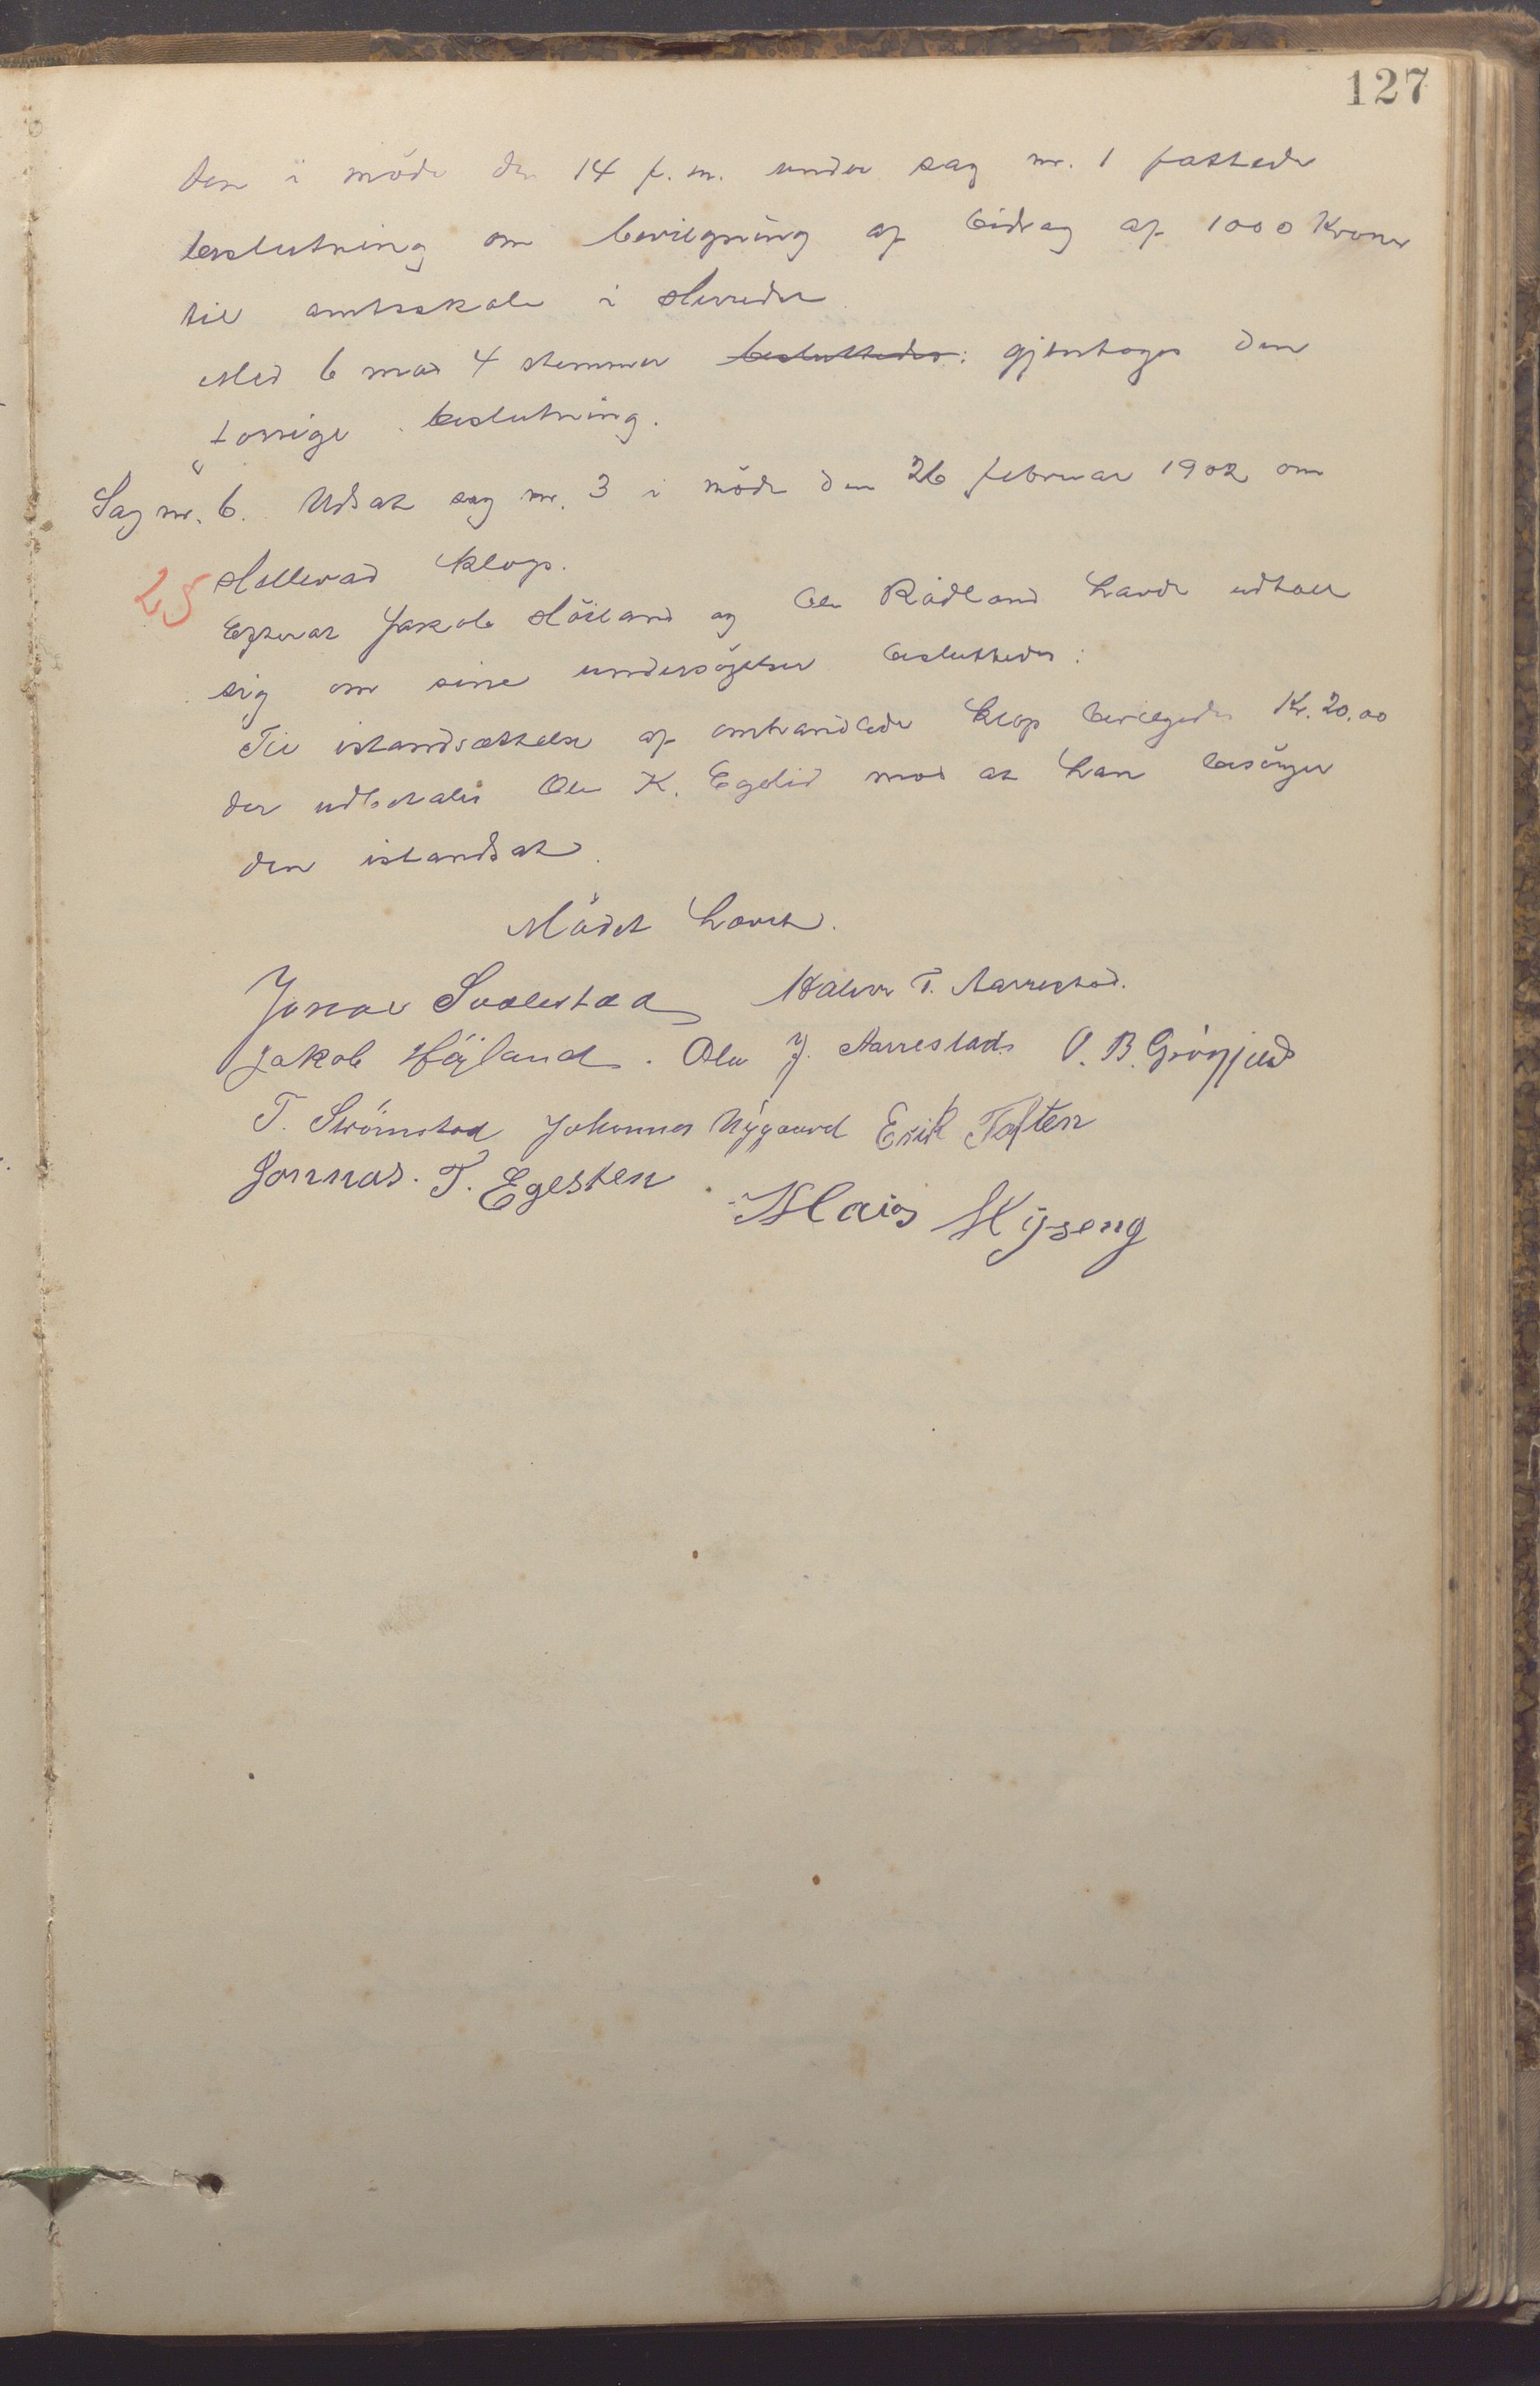 127
den i möde den 14 f. m. under sag nr. 1 fattede
beslutning om bevilgning af bidrag af 1000 Kroner
til amtsskole i Herredet
Med 6 mod 4 stemmer besluttedes: gjentoges den
forrige beslutning.
Sag nr. 6. Udsat sag nr. 3 i möde den 26 februar 1902 om
25 Hellevad klop.
Efterat Jakob Höiland og Ole Rådland havde udtalt
sig om sine undersögelser besluttedes:
Til istandsættelse af omhandlede klop bevilgedes Kr. 20,00
der udbetales Ole K. Egelid mod at han besörger
den istandsat.
Mödet hævet.
Jonas Svalestad Halvor T. Aarrestad.
Jakob Höjland. Ole J. Aarrestad. O. B. Grösfjeld
T. Strömstad Johannes Nÿgaard Erik Toften
Jonnas. T. Egesten
Klaus Myseng